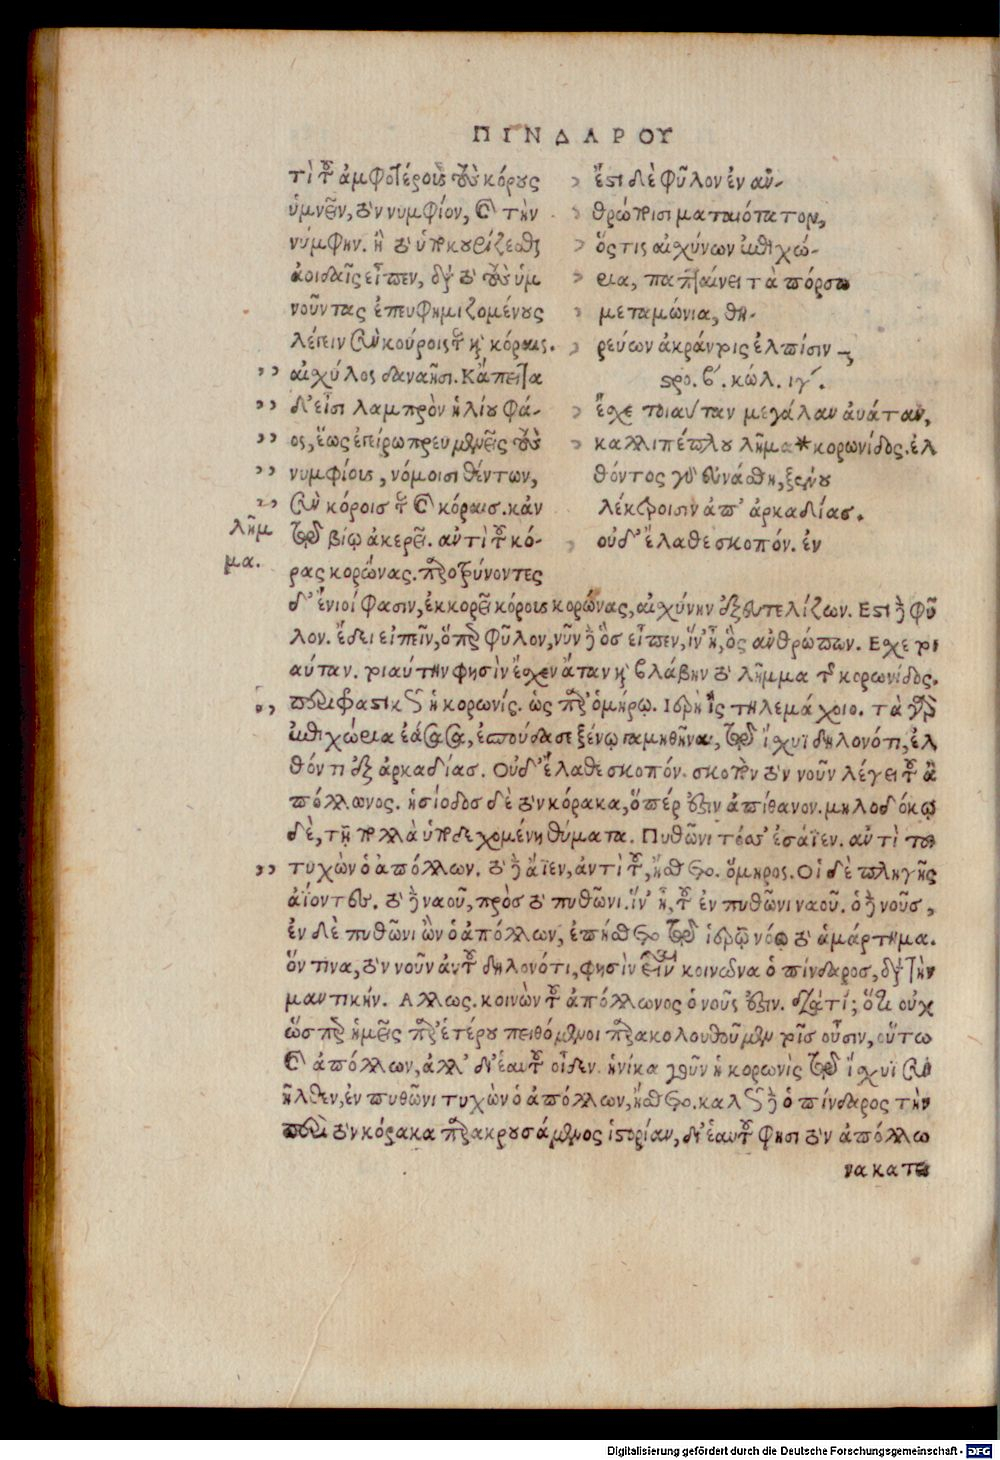 ΠΙΝΔΑΡΟΥ
τὶ τοῦ ἀμφοτέρους τοὺς κόρους
ὑμνεῖν, τὸν νυμφίον, καὶ τὴν
νύμφην. ἢ τὸ ὑποκουρίζεσθαι
ἀοιδαῖς εἶπεν, διὰ τὸ τοὺς ὑμ
νοῦντας ἐπευφημιζομένους
λέγειν σὺν κούροις τε καὶ κόραις.
αἰσχύλος δαναῆσι. Κἄπειτα
δ' εἶσι λαμπρὸν ἡλίου φά-
ος, ἕως ἐγείρω πρευμενεῖς τοὺς
νυμφίους, νόμοισι θέντων,
σὺν κόροις τε καὶ κόραις. κἀν
τῷ βίῳ ἀκερεῖ. αντὶ τοῦ κό-
ρας κορώνας. παροξύνοντες
λῆμ
μα.
ἔστι δὲ φῦλον ἐν αν-
θρώποισι ματαιότατον,
ὅστις αἰσχύνων ἐπιχώ-
ρια, παπταίνει τὰ πόρσω
μεταμώνια, θη-
ρεύων ἀκράντοις ἐλπίσιν
στρο. β. κώλ. ιγ.
ἔσχε τοιαύταν μεγάλαν ἀυάταν,
καλλιπέπλου λῆμα * κορωνίδος. ἐλ
θόντος γὰρ εὐνάσθη, ξένου
λέκτροισιν ἀπ' ἀρκαδίας.
οὐδ' ἔλαθε σκοπόν. ἐν
δ' ἔνιοί φασιν, ἐκκορεῖ κόρους κορώνας, αἰσχύνην ἐξευτελίζων. Εστι δὲ φῦ
λον. ἔδει εἰπεῖν, ὅπερ φῦλον, νῦν δὲ ὃσ εἶπεν, ἵν' ᾖ, ὃς ανθρώπων. Εσχε τοι
αύταν. τοιαύτην φησὶν ἔσχεν ἄταν καὶ βλάβην τὸ λῆμμα τῆς κορωνίδος.
περιφραστικῶς ἡ κορωνίς. ὡς παρ' ὁμήρῳ. Ιερὴ ἲς τηλεμάχοιο. τὰ γὰρ
ἐπιχώρια ἐάσασα, ἐσπούδασε ξένῳ γαμηθῆναι, τῷ ἴσχυϊ δηλονότι, ἐλ
θόντι ἐξ ἀρκαδίας. Οὐδ' ἔλαθε σκοπόν. σκοπὸν τὸν νοῦν λέγει τοῦ ἀ
πόλλωνος. ἡσίοδος δὲ τὸν κόρακα, ὅπέρ ἐστιν ἀπίθανον. μηλοδόκῳ
δὲ, τῇ πολλὰ ὑποδεχομένῃ θύματα. Πυθῶνι τόσσ' ἐσάϊεν. αντὶ τοῦ
τυχὼν ὁ ἀπόλλων. τὸ δὲ ἄϊεν, ἀντὶ τοῦ, ᾔσθετο. ὅμηρος. Οἱ δὲ πληγῆς
ἀΐοντες. τὸ δὲ ναοῦ, πρὸς τὸ πυθῶνι. ἵν' ᾖ, τοῦ ἐν πυθῶνι ναοῦ. ὁ δὲ νοῦς,
ἐν δὲ πυθῶνι ὢν ὁ ἀπόλλων, ἐπῄσθετο τῷ ἱερῷ νόῳ τὸ ἁμάρτημα.
ὅντινα, τὸν νοῦν αὐτοῦ δηλονότι, φησὶν εἶναι κοινῶνα ὁ πίνδαρος, διὰ τὴν
μαντικήν. Αλλως. κοινὼν τοῦ ἀπόλλωνος ὁ νοῦς ἐστιν. διατί; ὅτι οὐχ
ὥσπερ ἡμεῖς παρ' ἑτέρου πειθόμενοι παρακολουθοῦμεν τοῖς οὖσιν, οὕτω
καὶ ἀπόλλων, ἀλλ' δι' ἑαυτοῦ οἶδεν. ἡνίκα γοῦν ἡ κορωνὶς τῷ ἴσχυϊ συν
ῆλθεν, ἐν πυθῶνι τυχὼν ὁ ἀπόλλων, ᾔσθετο. καλῶς δὲ ὁ πίνδαρος τὴν
περὶ τὸν κόρακα παρακρουσάμενος ἱστορίαν, δι' ἑαυτοῦ φησι τὸν ἀπόλλω
να κατει
Digitalisierung gefördert durch die Deutsche Forschungsgemeinschaft - DFG